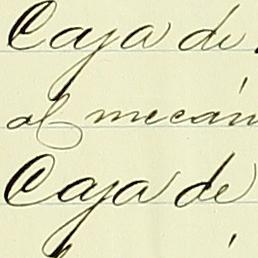 Caja de
al mecán
Caja de